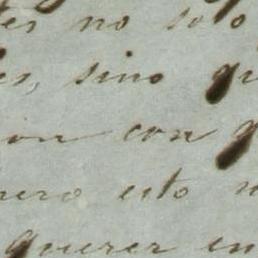 es no solo
es, sino qu
ion con q
nero esto n
querer en